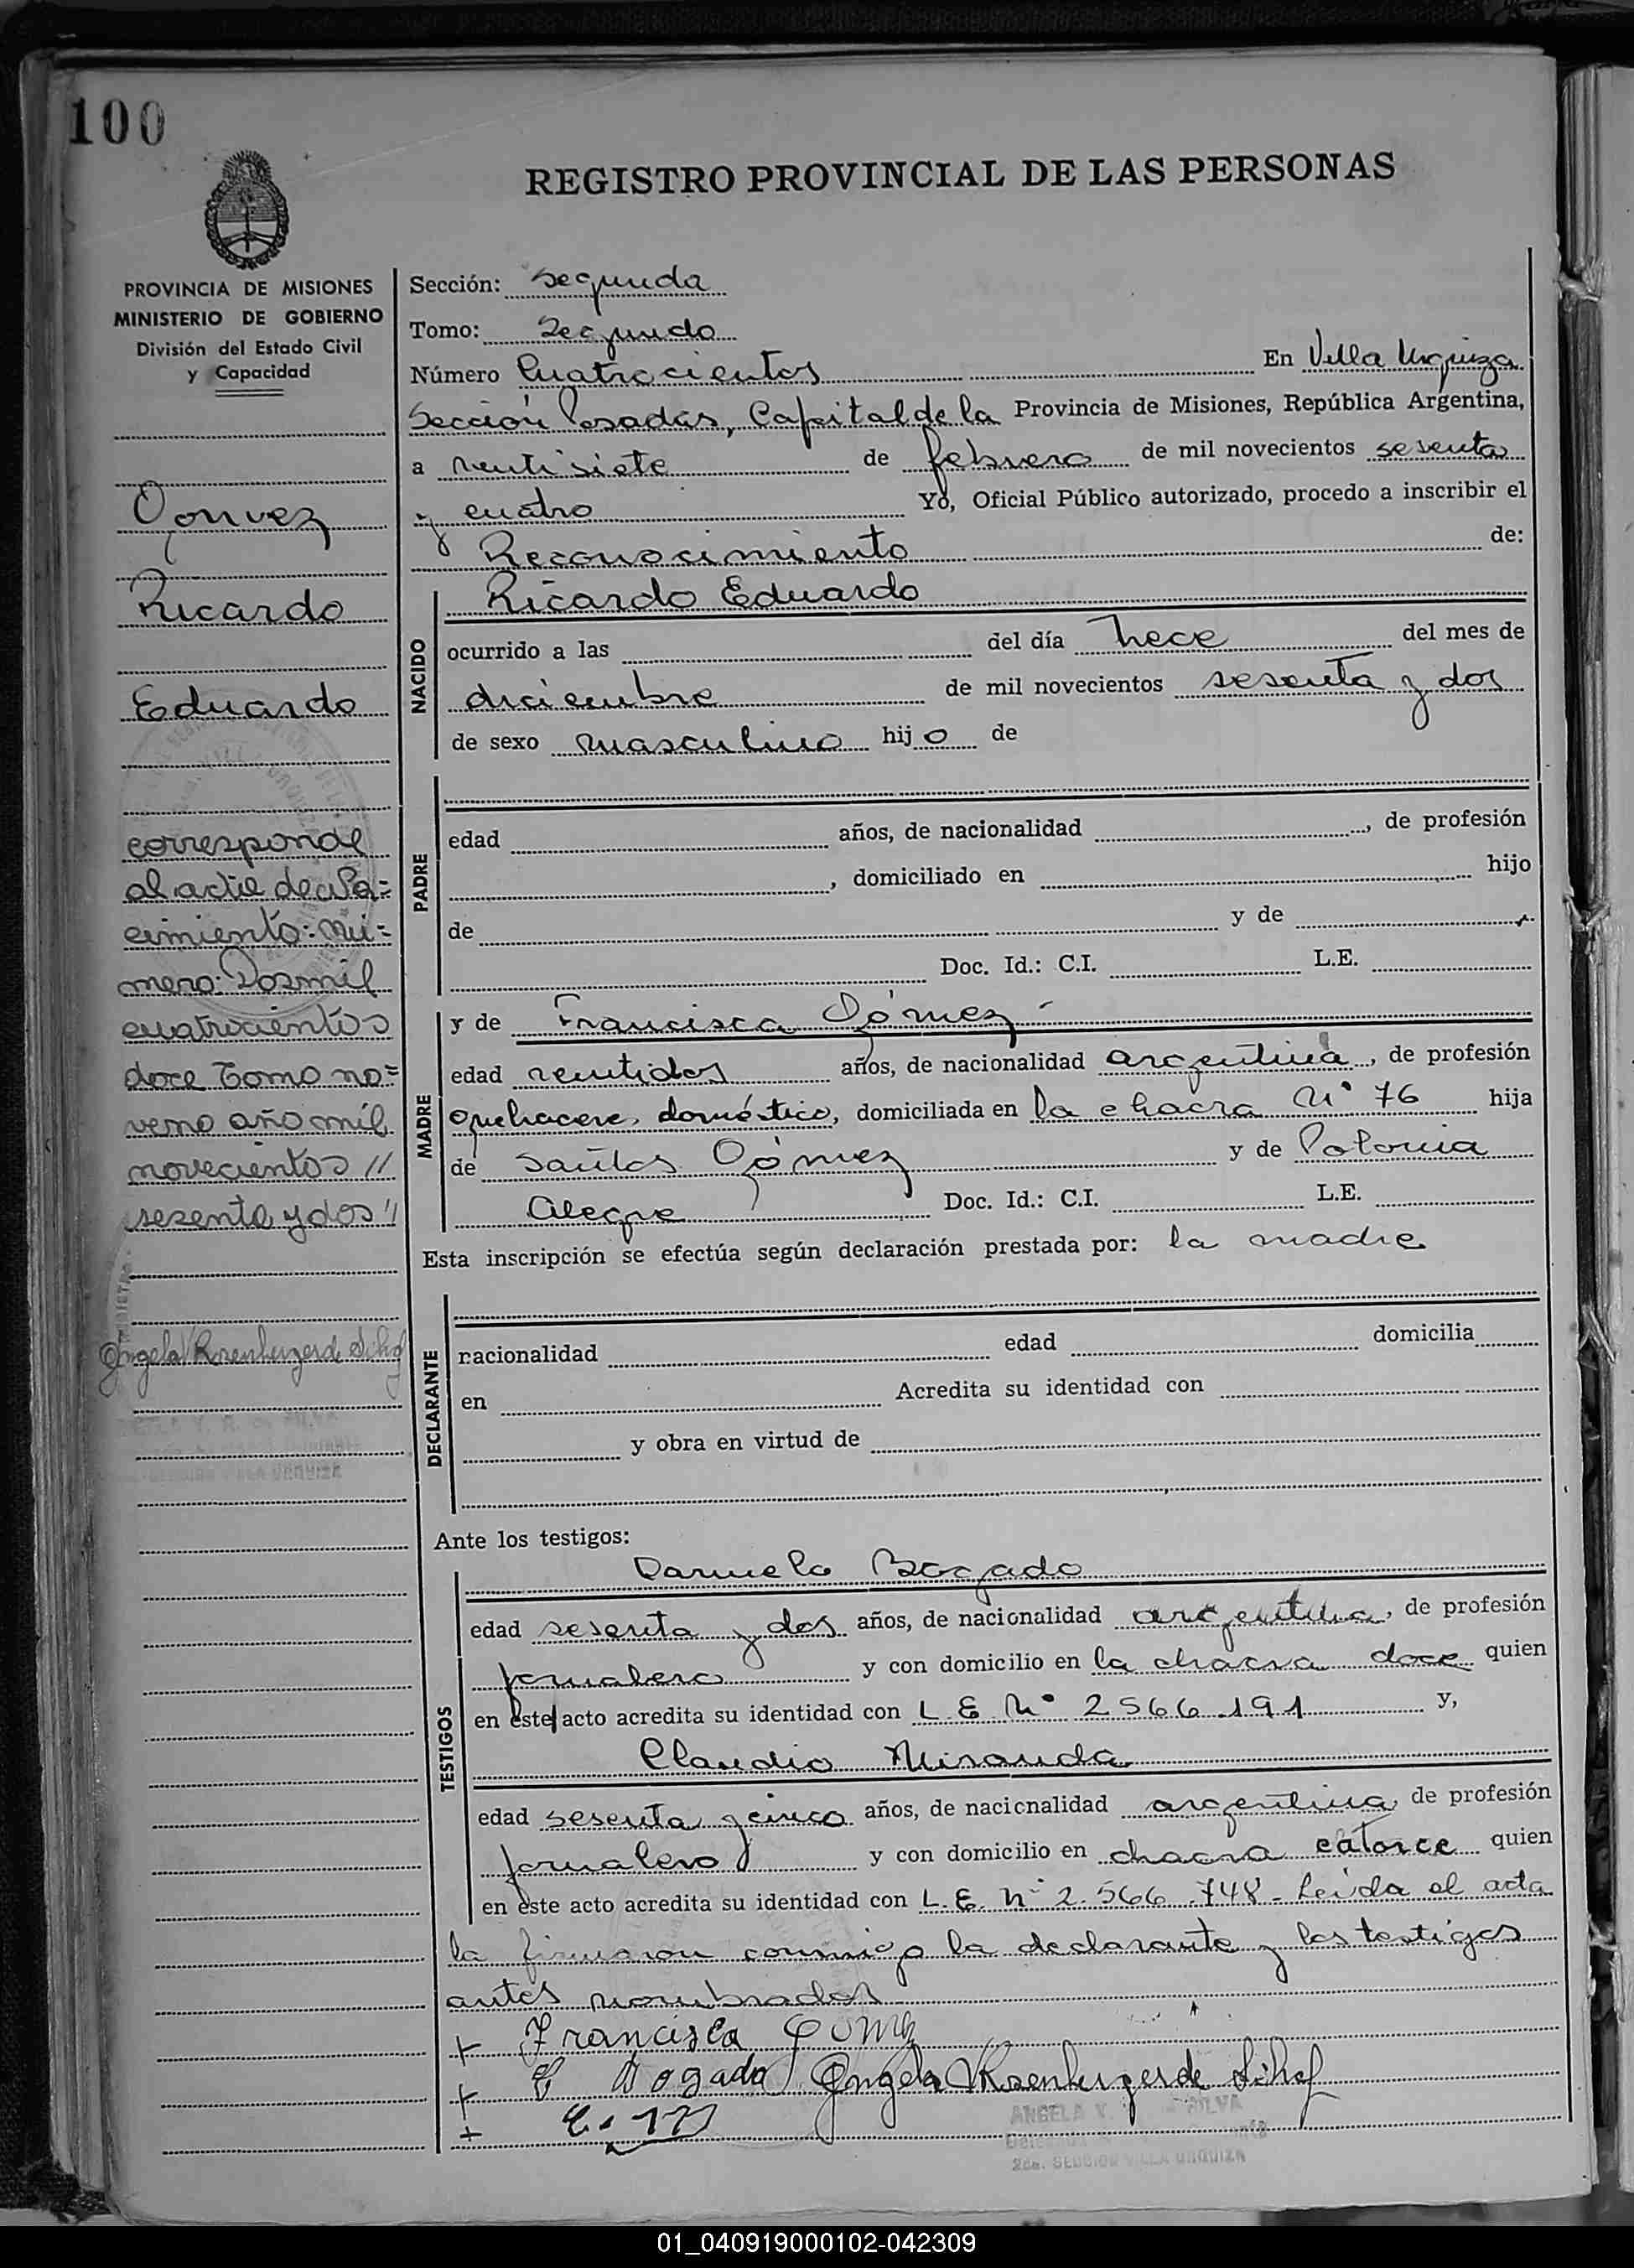 100
REGISTRO PROVINCIAL DE LAS PERSONAS
PROVINCIA DE MISIONES
MINISTERIO DE GOBIERNO
División del Estado Civil
y Capacidad
Gomez
Ricardo
Eduardo
corresponde
al acta de Na=
cimiento: Nú=
mero: Dosmil
cuatrocientos
doce Tomo no=
veno año mil
novecientos //
sesenta y dos //
Sección: Segunda
Tomo: Segundo
Número Cuatrocientos En Villa Urquiza
Sección Posadas, Capital de la Provincia de Misiones, República Argentina,
a ventisiete de febrero de mil novecientos sesenta
y cuatro Yo, Oficial Público autorizado, procedo a inscribir el
Reconocimiento de:
NACIDO
Ricardo Eduardo
ocurrido a las del día trece del mes de
diciembre de mil novecientos sesenta y dos
de sexo masculino hijo de
PADRE
edad años, de nacionalidad , de profesión
, domiciliado en hijo
de y de
Doc. Id.: C.I. L.E.
MADRE
y de Francisca Gómez
edad ventidos años, de nacionalidad argentina, de profesión
quehacere doméstico, domiciliada en la chacra Nº 76 hija
de Santos Gómez y de Polonia
Alegre Doc. Id.: C.I. L.E.
Esta inscripción se efectúa según declaración prestada por: la madre
DECLARANTE
nacionalidad edad domicilia
en Acredita su identidad con
y obra en virtud de
Ante los testigos:
TESTIGOS
Daniel Bogado
edad sesenta y dos años, de nacionalidad argentina, de profesión
jornalero y con domicilio en la chacra doce quien
en este acto acredita su identidad con L E Nº 2566.191 y,
Claudio Miranda
edad sesenta y cinco años, de nacionalidad argentina, de profesión
jornalero y con domicilio en chacra catorce quien
en este acto acredita su identidad con L.E. Nº 2.566.748 - Leída el acta
la firmaron conmigo la declarante y los testigos
antes nombrados
+ Francisca Gomez
+ Bogado Angela
+
ANGELA V. SILVA
2da. SECCION VILLA URQUIZA
01_040919000102-042309